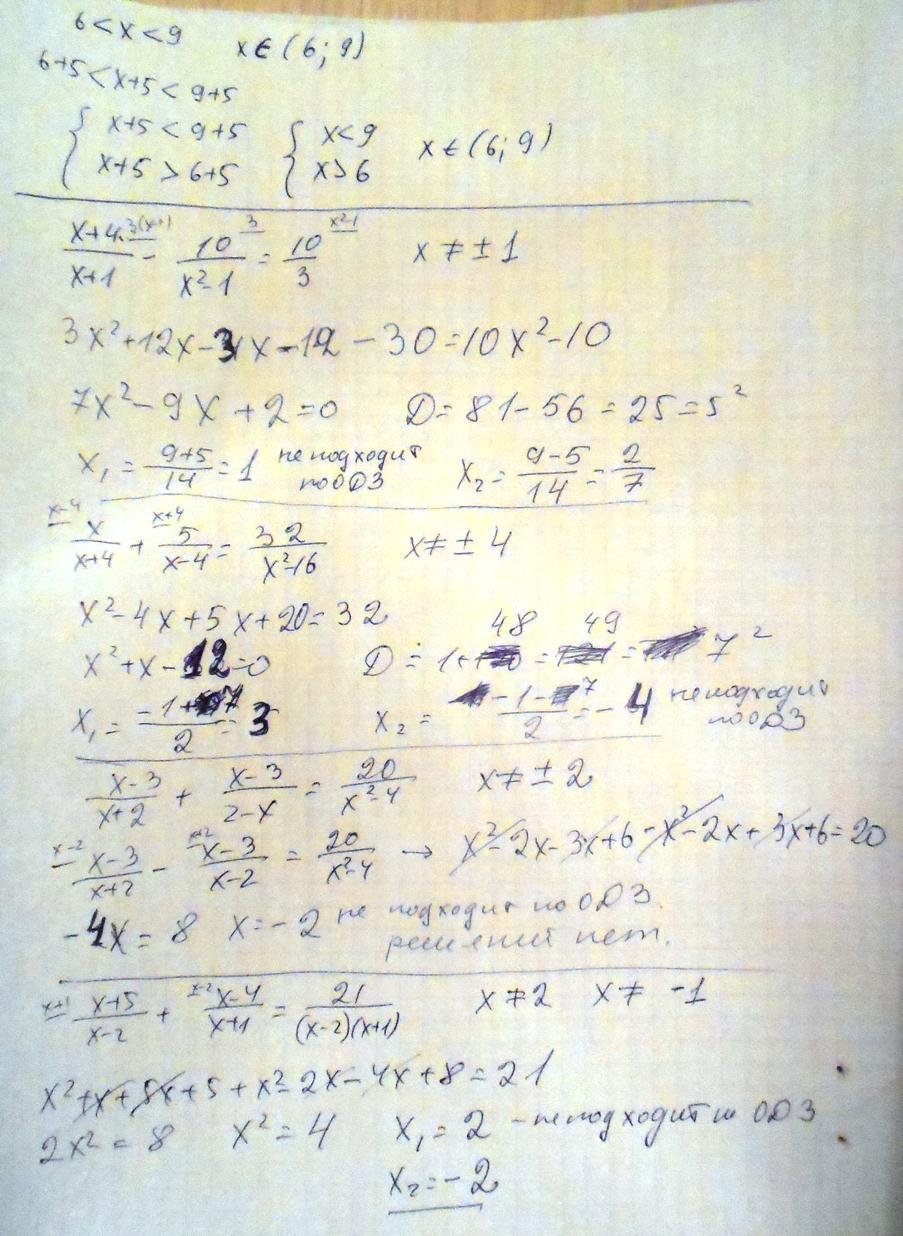 6<x<9 x∈(6;9)
6+5<x+5<9+5
{ x+5<9+5 { x<9 x∈(6;9)
x+5>6+5 x>6
(x+4)/(x+1) · 3(x-1) - 10/(x²-1) · 3 = 10/3 · x²-1 x≠±1
3x²+12x-3x-12-30=10x²-10
7x²-9x+2=0 D=81-56=25=5²
x₁=(9+5)/14=1 не подходит по ОДЗ x₂=(9-5)/14=2/7
x-4 x/(x+4) + x+4 5/(x-4) = 32/(x²-16) x≠±4
x²-4x+5x+20=32
x²+x-12=0 D=1+48=49=7²
x₁=(-1+7)/2=3 x₂=(-1-7)/2=-4 не подходит по ОДЗ
(x-3)/(x+2) + (x-3)/(2-x) = 20/(x²-4) x≠±2
x-2 (x-3)/(x+2) - x+2 (x-3)/(x-2) = 20/(x²-4) → x²-2x-3x+6-x²-2x+3x+6=20
-4x=8 x=-2 не подходит по ОДЗ.
решений нет.
x+1 (x+5)/(x-2) + x-2 (x-4)/(x+1) = 21/((x-2)(x+1)) x≠2 x≠-1
x²+x+5x+5+x²-2x-4x+8=21
2x²=8 x²=4 x₁=2 - не подходит по ОДЗ
x₂=-2